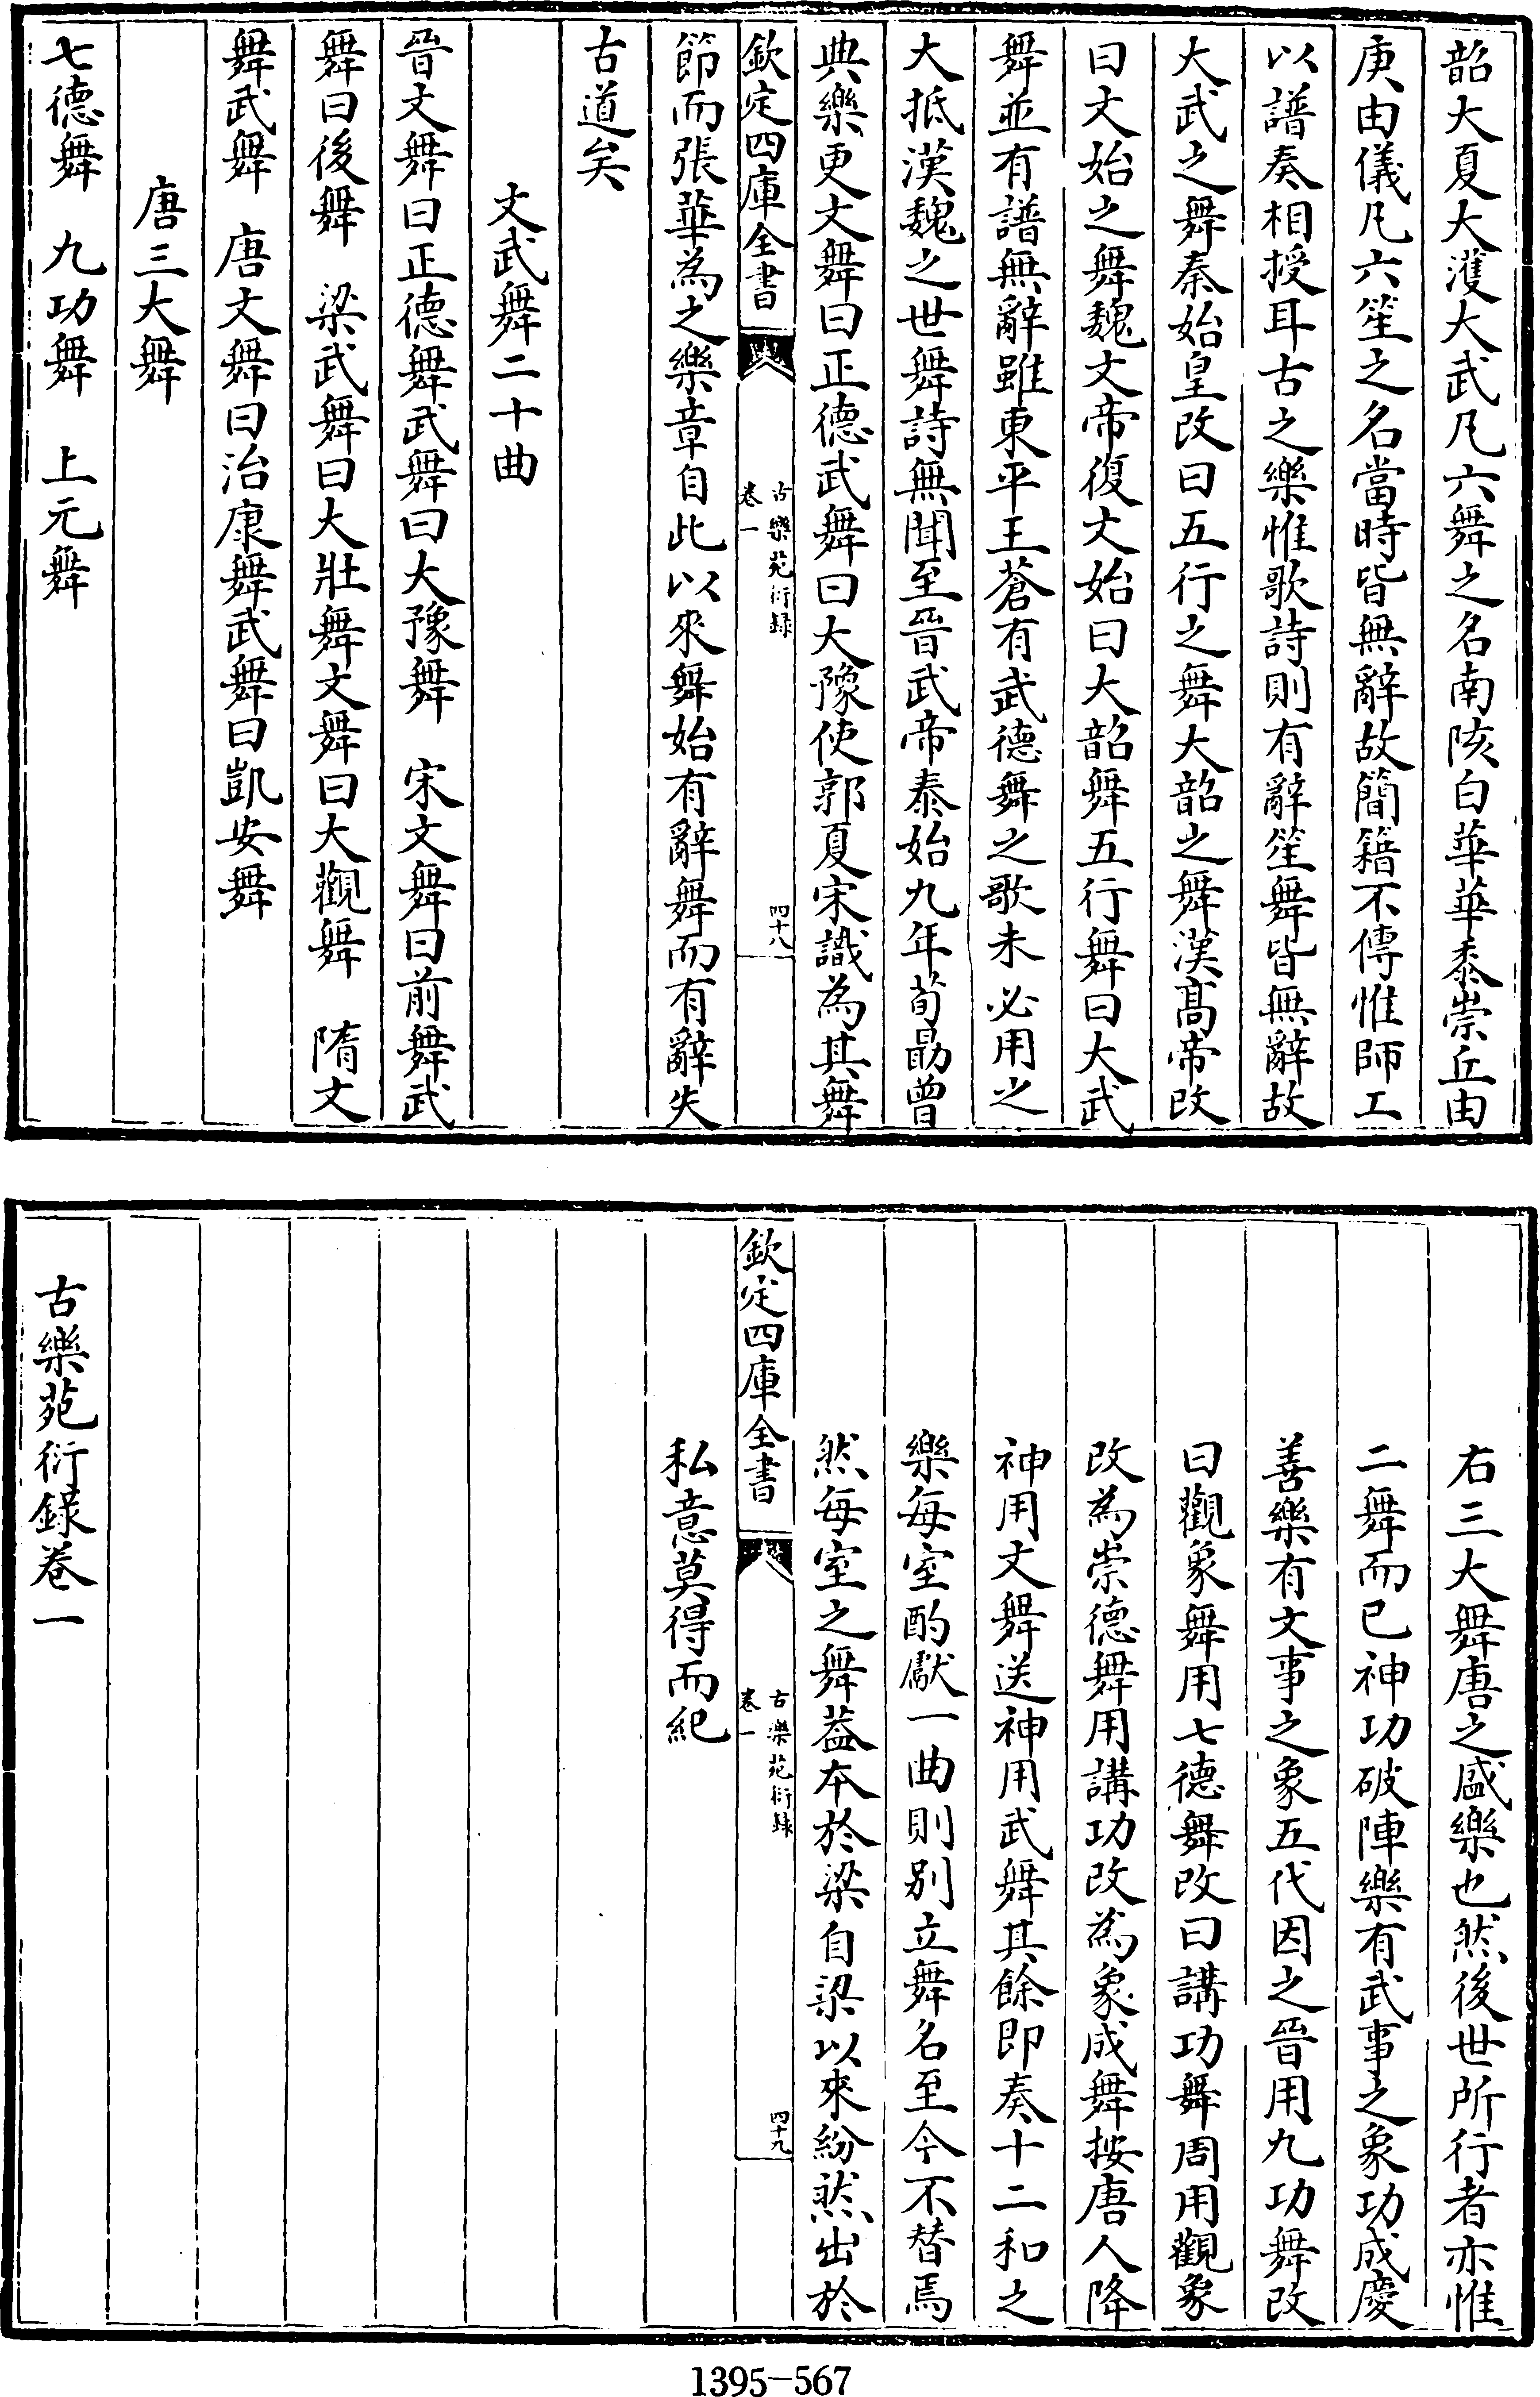 韶大夏大濩大武凡六舞之名南陔白華華黍崇丘由
庚由儀凡六笙之名當時皆無辭故簡籍不傳惟師工
以譜奏相授耳古之樂惟歌詩則有辭笙舞皆無辭故
大武之舞秦始皇改曰五行之舞大韶之舞漢髙帝改
曰文始之舞魏文帝復文始曰大韶舞五行舞曰大武
舞並有譜無辭雖東平王蒼有武德舞之歌未必用之
大抵漢魏之世舞詩無聞至晉武帝泰始九年荀勗曾
典樂更文舞曰正德武舞曰大豫使郭夏宋識為其舞
欽定四庫全書
古樂苑衍録
卷一
四十八
節而張華為之樂章自此以來舞始有辭舞而有辭失
古道矣
文武舞二十曲
晉文舞曰正德舞武舞曰大豫舞 宋文舞曰前舞武
舞曰後舞 梁武舞曰大壯舞文舞曰大觀舞 隋文
舞武舞 唐文舞曰治康舞武舞曰凱安舞
唐三大舞
七德舞 九功舞 上元舞
右三大舞唐之盛樂也然後世所行者亦惟
二舞而已神功破陣樂有武事之象功成慶
善樂有文事之象五代因之晉用九功舞改
曰觀象舞用七德舞改曰講功舞周用觀象
改為崇德舞用講功改為象成舞按唐人降
神用文舞送神用武舞其餘即奏十二和之
樂每室酌獻一曲則别立舞名至今不替焉
然每室之舞蓋本於梁自梁以來紛然出於
欽定四庫全書
古樂苑衍録
卷一
四十九
私意莫得而紀
古樂苑衍錄卷一
1395-567